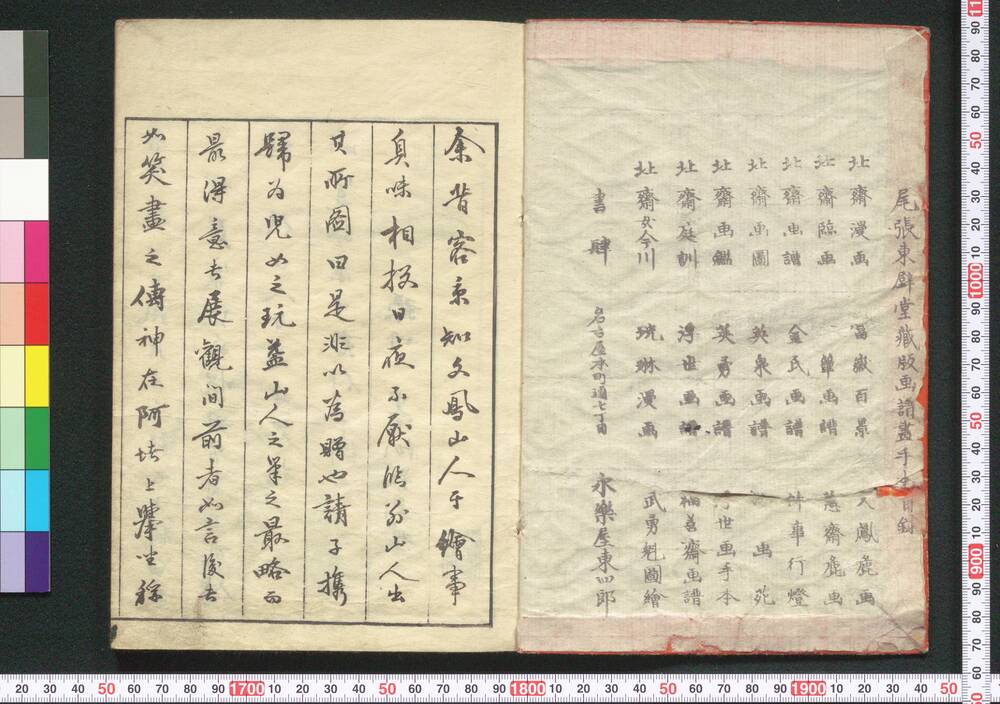 尾張東壁堂藏版画譜畫手本目録
北齋漫画 富嶽百景 文鳳麁画
北齋臨画 畫譜 蕙齋麁画
北齋画譜 金氏画譜 行燈
北齋画圖 英泉画譜 画苑
北齋画鑑 英勇画譜 浮世画手本
北齋庭訓 浮世画譜 福善齋画譜
北齋女今川 光琳漫画 武勇魁圖繪
書肆 名古屋本町通七丁目 永樂屋東四郎
余昔客京知文鳳山人于繪事
臭味相投日夜不厭臨別山人出
其所圖曰是非以為贈也請子携
歸為児女之玩蓋山人之筆之最略而
最得意者展観间前者如言後者
如笑畫之傳神在阿堵上挙坐称
1700
1800
1900
1000
900